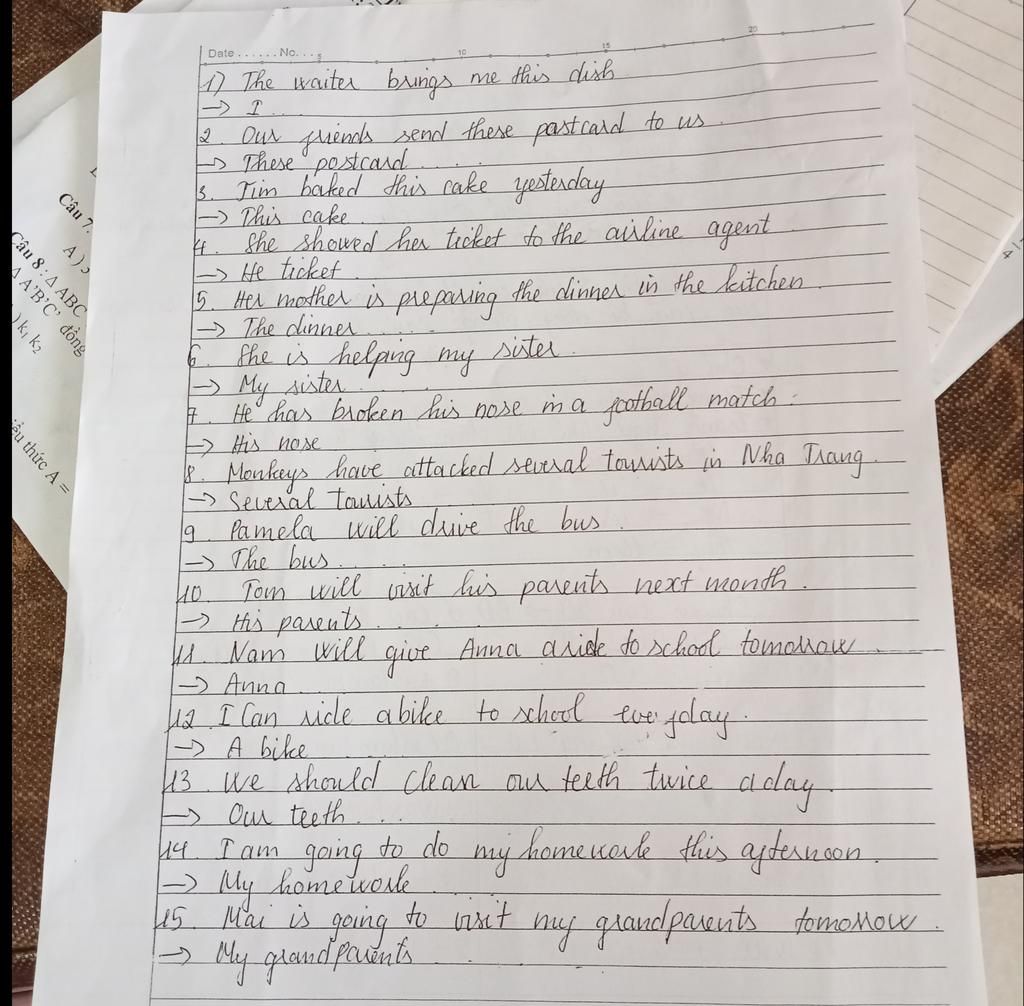 Date ...... No. ... 5 10 15 20
1) The waiter brings me this dish
→ I ...
2. Our friends send these postcard to us.
→ These postcard .....
3. Tim baked this cake yesterday
→ This cake.
4. She showed her ticket to the airline agent
→ He ticket
5. Her mother is preparing the dinner in the kitchen.
→ The dinner.....
6. She is helping my sister.
→ My sister.....
7. He has broken his nose in a football match.
→ His nose
8. Monkeys have attacked several tourists in Nha Trang.
→ Several tourists
9. Pamela will drive the bus.
→ The bus.....
10. Tom will visit his parents next month.
→ His parents.....
11. Nam will give Anna a ride to school tomorrow.
→ Anna.....
12 I Can ride a bike to school everyday.
→ A bike
13. We should clean our teeth twice a day.
→ Our teeth...
14. I am going to do my homework this afternoon.
→ My homework
15. Mai is going to visit my grandparents tomorrow.
→ My grandparents
Câu 7.
A)
Câu 8: Δ ABC
Δ A'B'C' đồng
k₁ k₂
thức A =